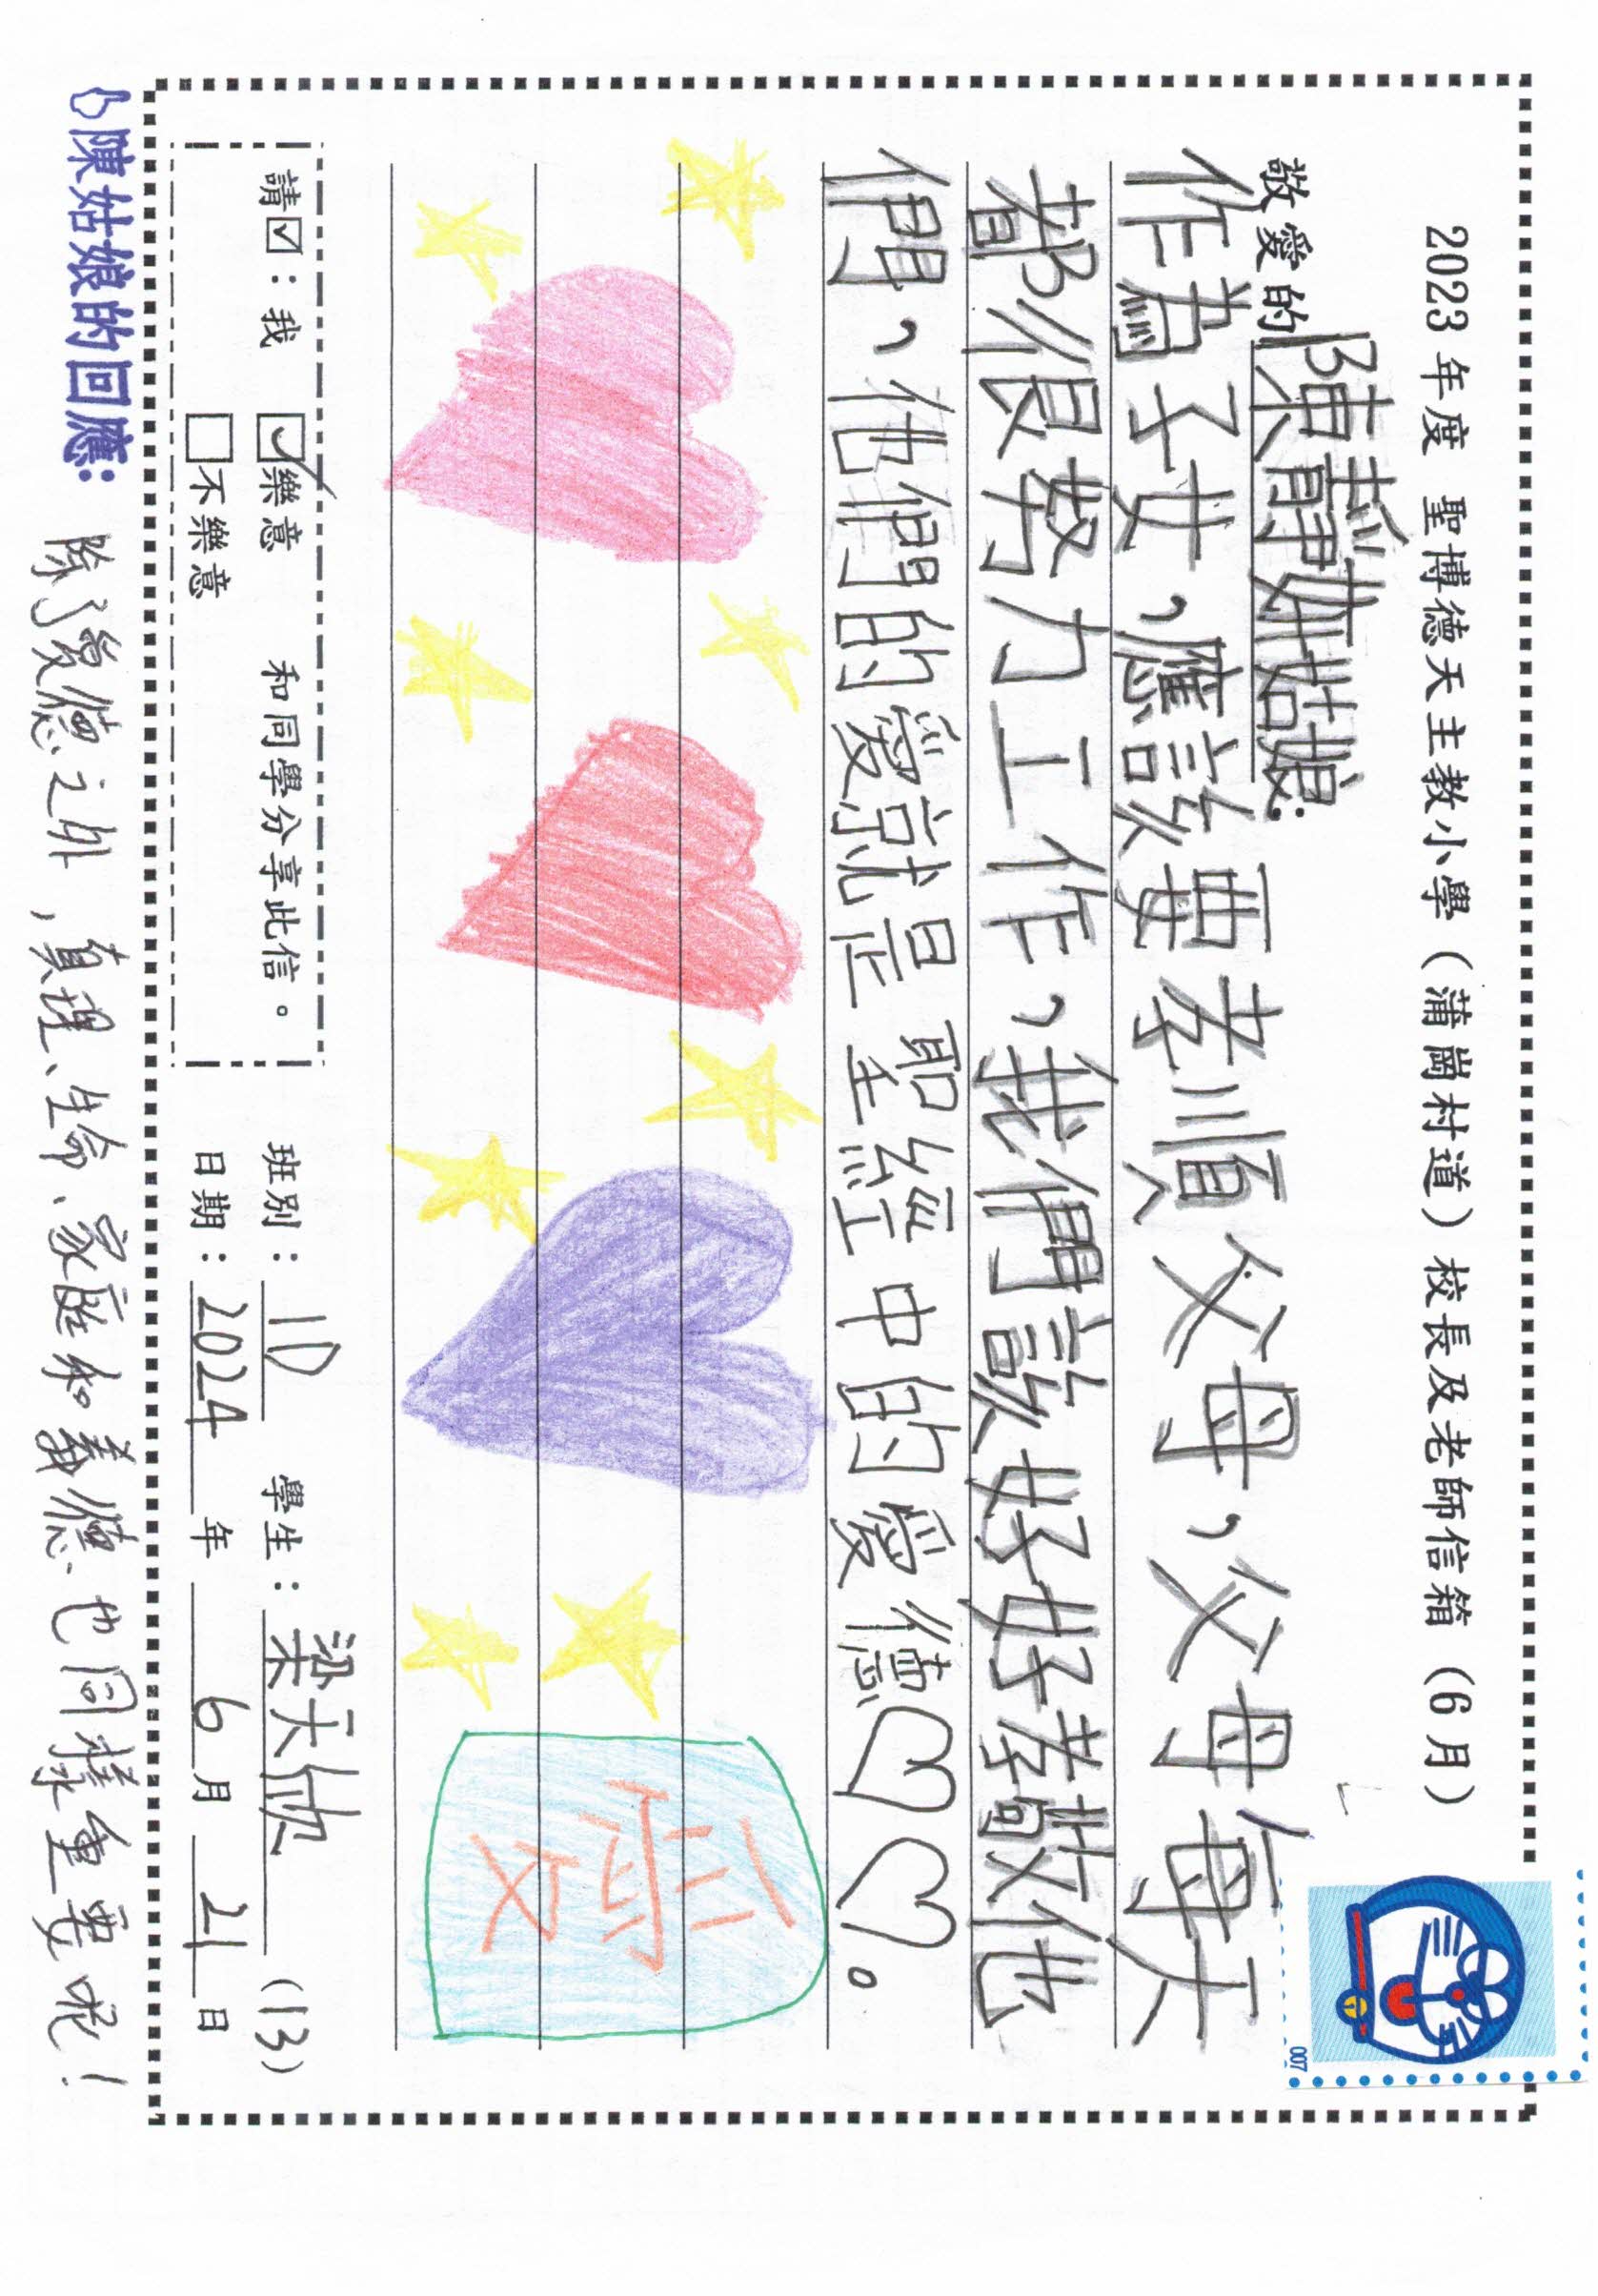 2023 年度 聖博德天主教小學（蒲崗村道）校長及老師信箱（6月）
敬愛的陳靜姑姑娘：
作為子女，應該要孝順父母，父母每天
都很努力工作，我們該好好孝敬他
們，他們的愛就是聖經中的愛德♡♡。
請☑：我 ☑樂意 和同學分享此信。
☐不樂意
班別：1D 學生：梁天欣 (13)
日期：2024 年 6 月 21 日
陳姑娘的回應：除了愛德之外，真理、生命、家庭和義德也同樣重要呢！
007